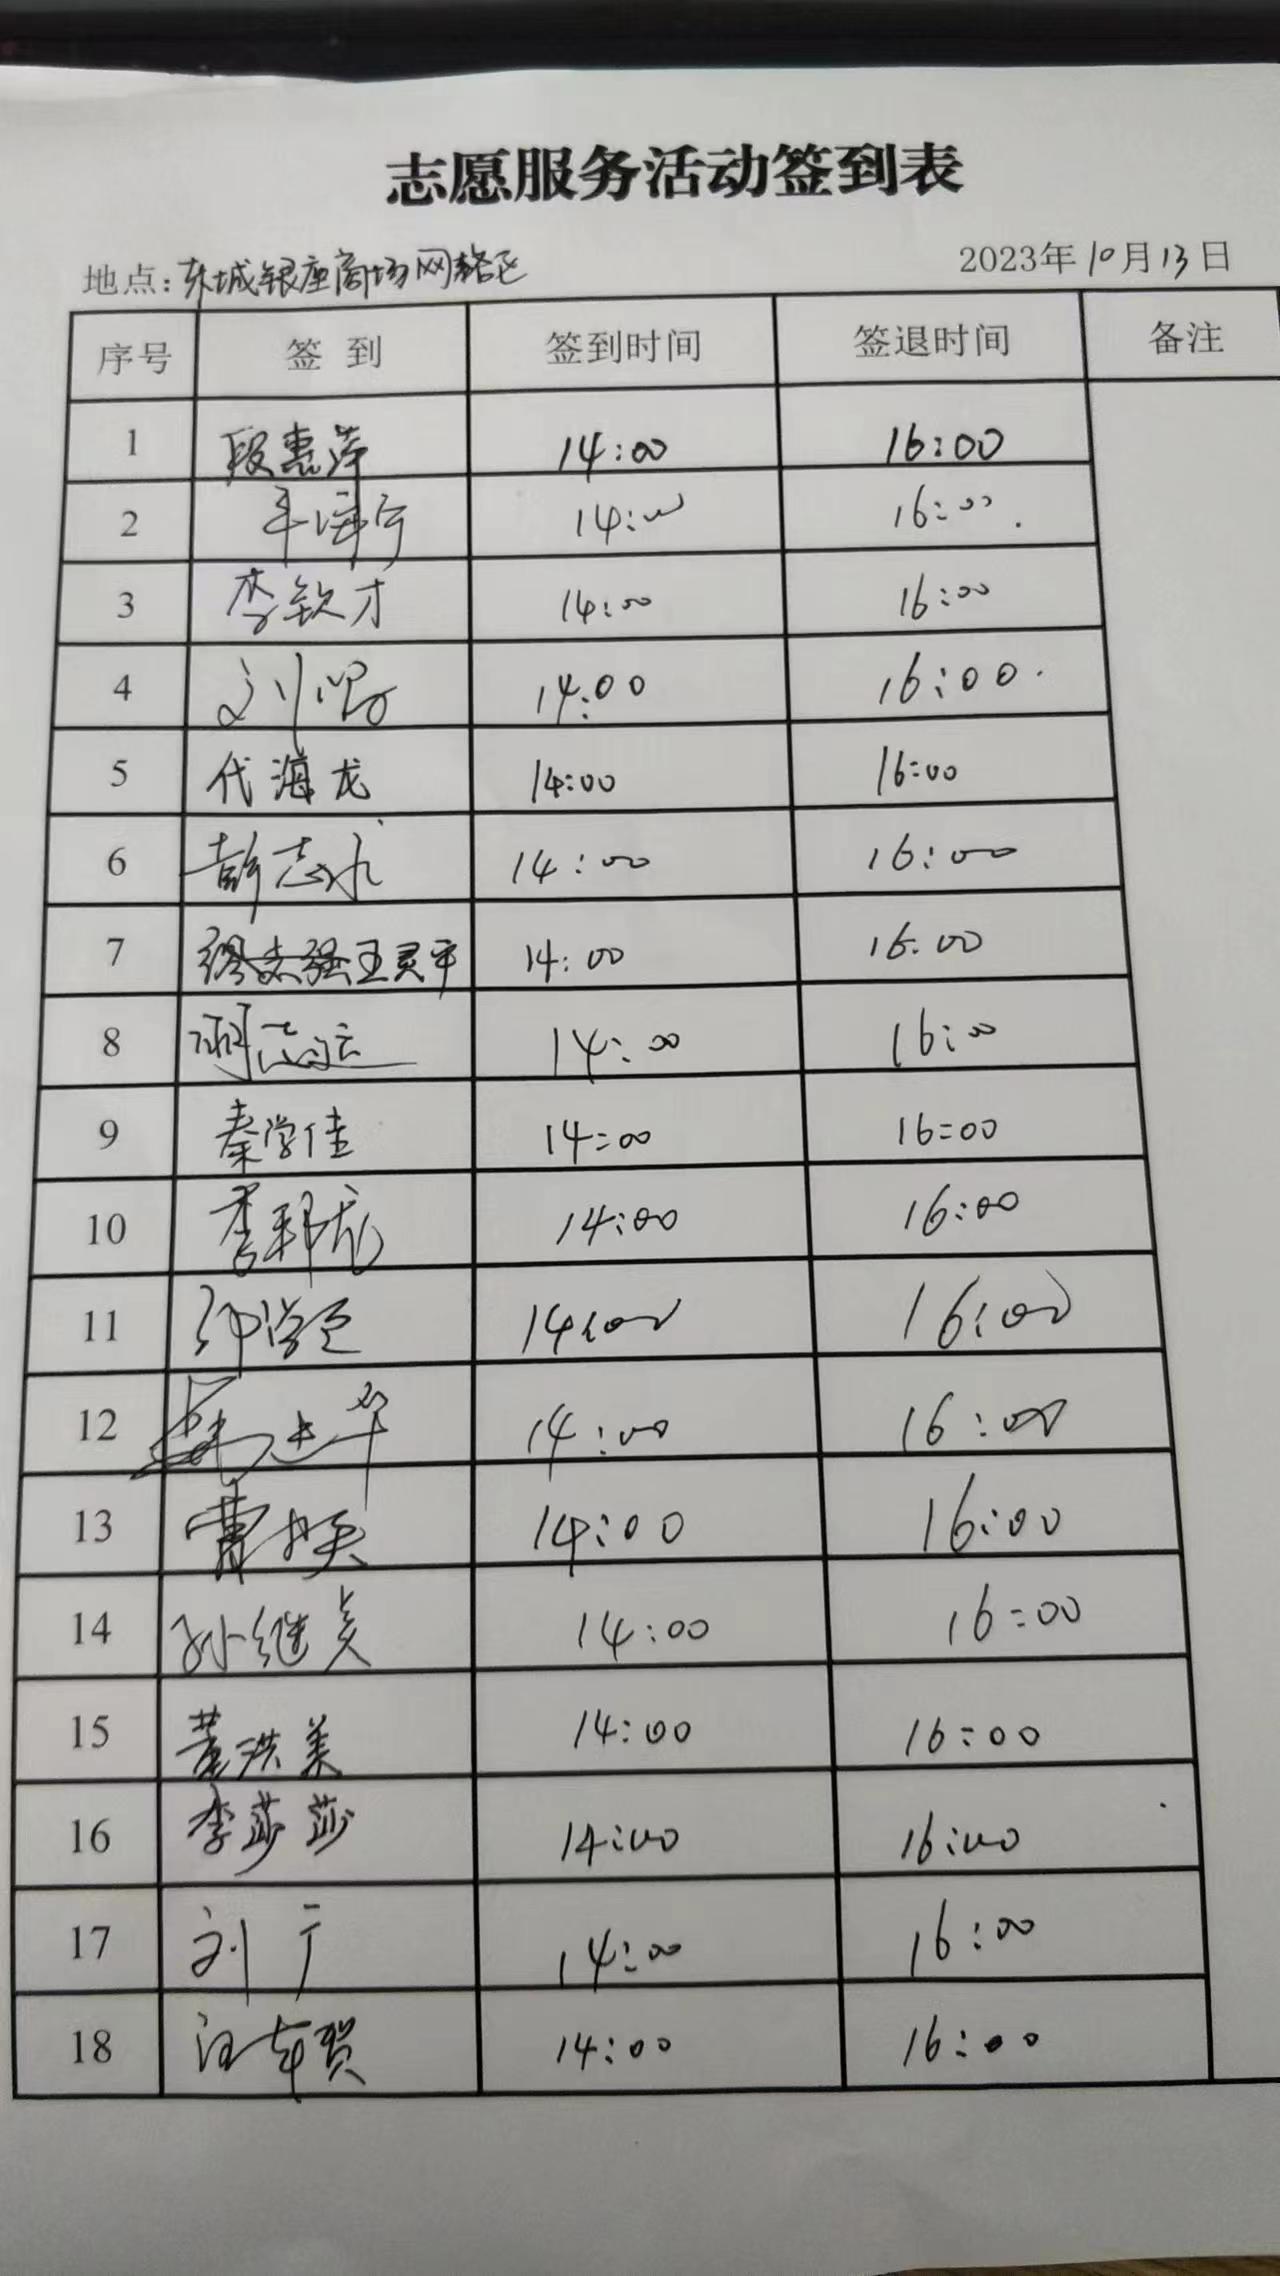 志愿服务活动签到表
地点:东城银座商场网格区 2023年10月13日
序号 签到 签到时间 签退时间 备注
1 段惠萍 14:00 16:00
2 14:00 16:00
3 李钦才 14:00 16:00
4 刘 14:00 16:00
5 代海龙 14:00 16:00
6 彭志 14:00 16:00
7 王灵平 14:00 16:00
8 14:00 16:00
9 秦学佳 14:00 16:00
10 李 14:00 16:00
11 14:00 16:00
12 14:00 16:00
13 曹 14:00 16:00
14 孙继 14:00 16:00
15 董洪美 14:00 16:00
16 李莎莎 14:00 16:00
17 刘广 14:00 16:00
18 汪 贺 14:00 16:00